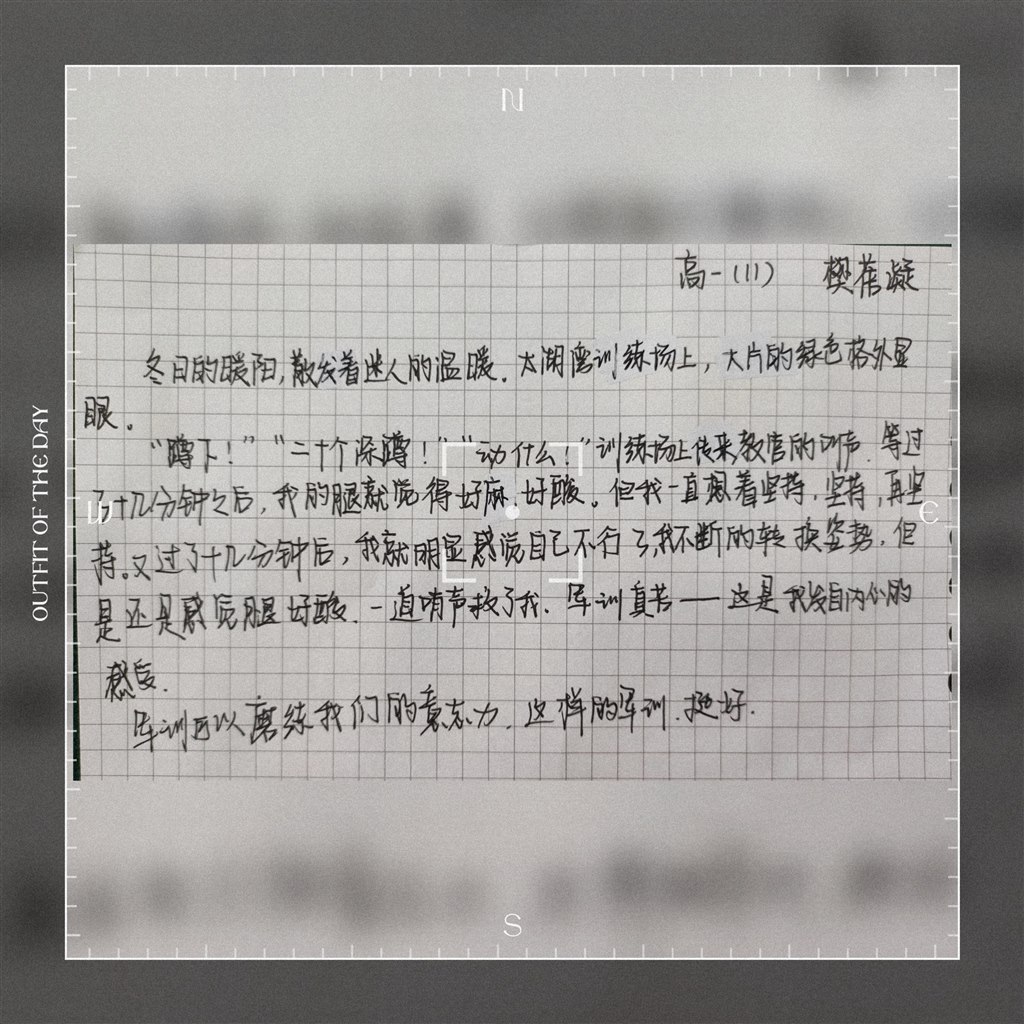 N
高一(11) 樊蓓凝
冬日的暖阳,散发着迷人的温暖。太湖 训练场上,大片的绿色格外显
眼。
“蹲下!”“二十个深蹲!”“动什么!”训练场上传来教官的叫声。等过
了十几分钟之后,我的腿就觉得好麻,好酸。但我一直想着坚持,坚持,再坚
持。又过了十几分钟后,我就明显感觉自己不行了,我不断的转换姿势,但
是还是感觉腿好酸。一道哨声救了我。军训真苦——这是我发自内心的
感受.
军训可以磨练我们的意志力,这样的军训,挺好.
W
E
S
OUTFIT OF THE DAY